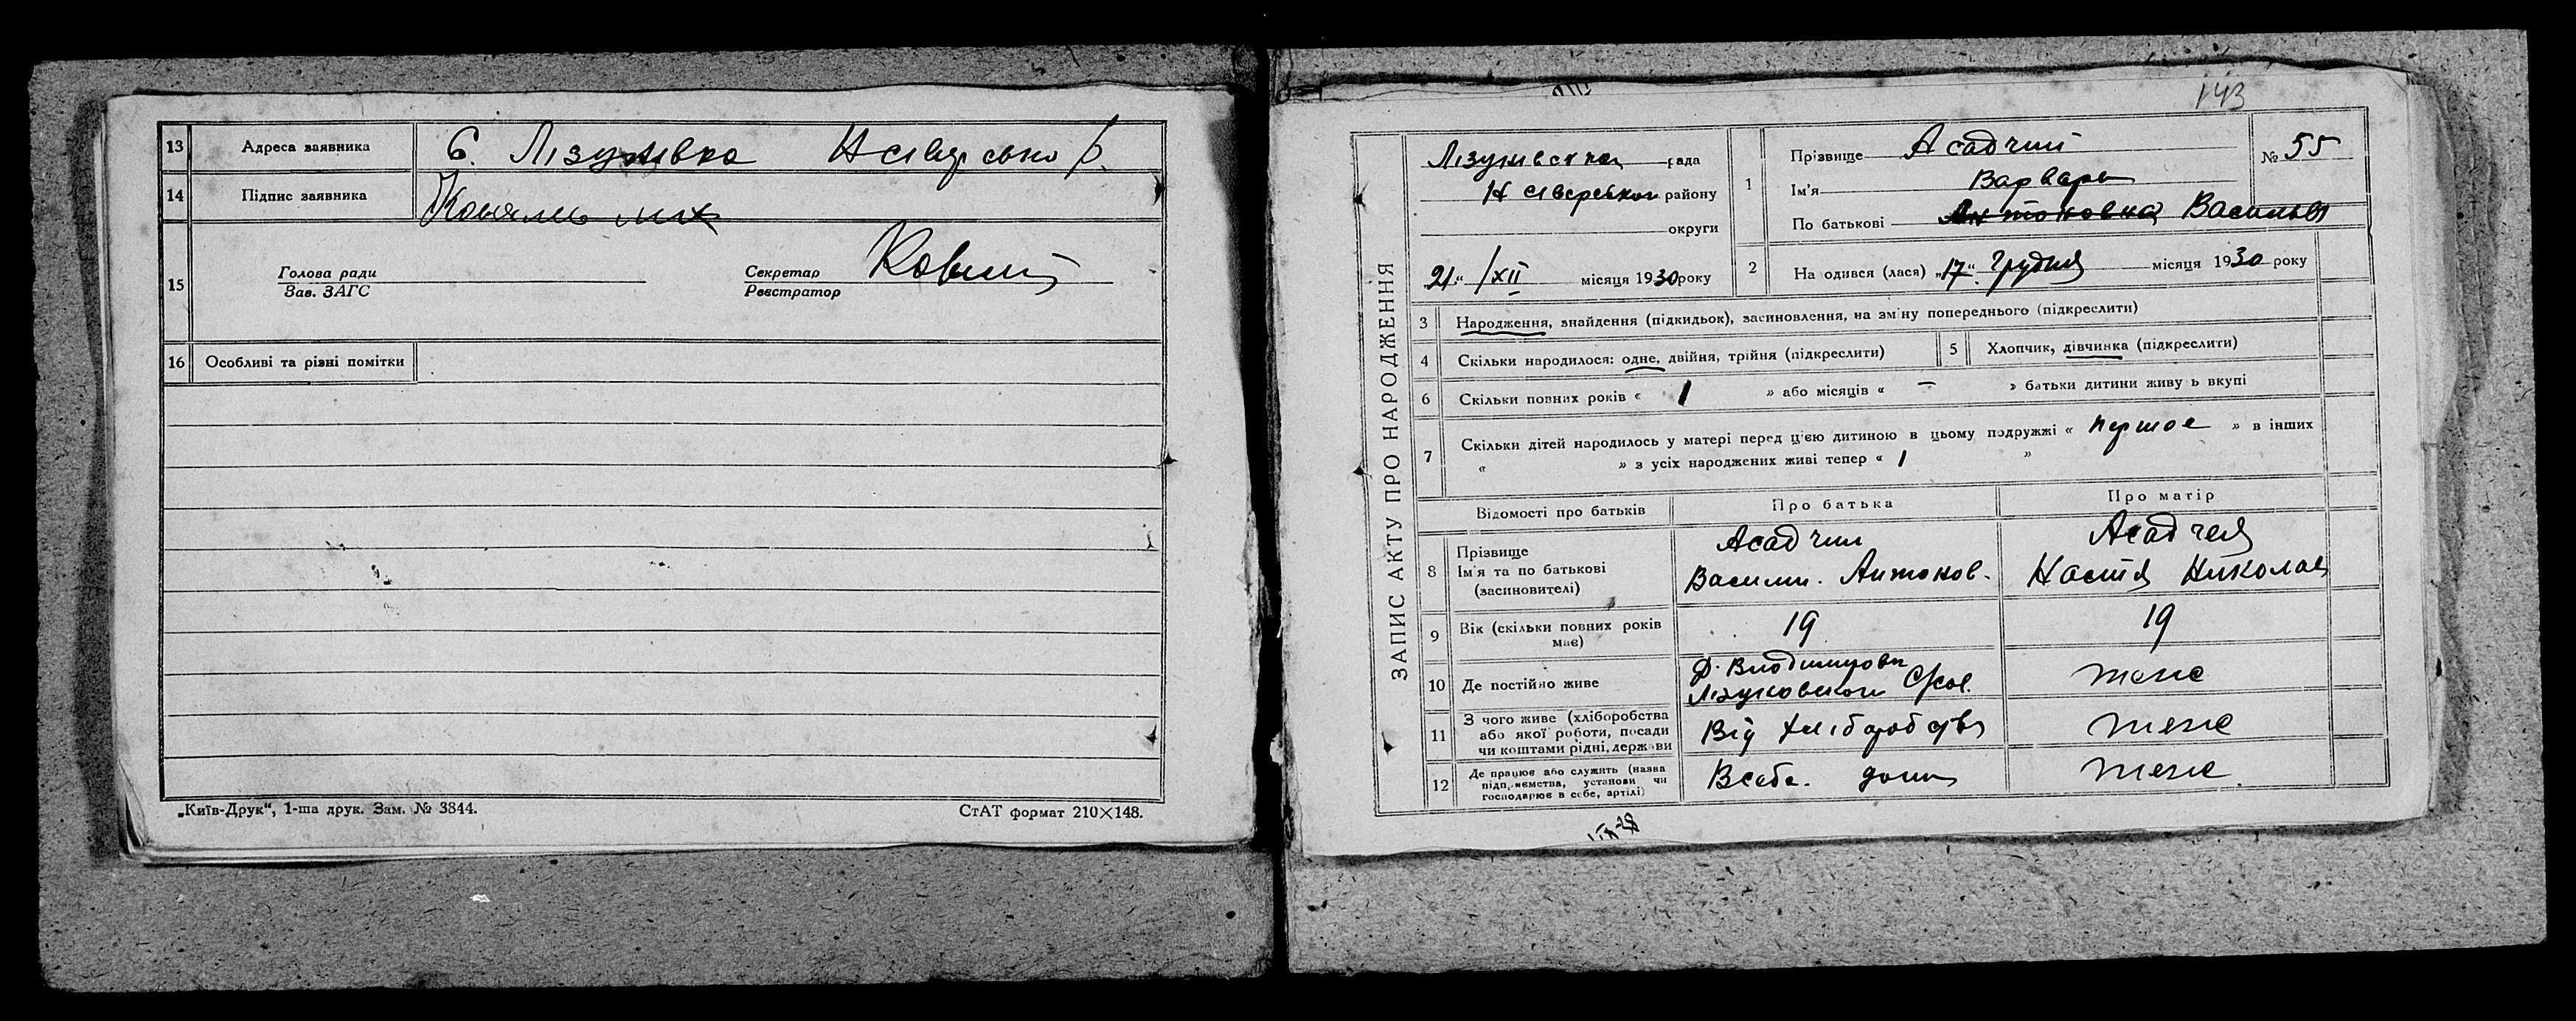 13 Адреса заявника С. Лізунівка Н сіверсько р.
14 Підпис заявника
15 Голова ради Секретар
Зав. ЗАГС Реєстратор
16 Особливі та різні помітки
„Київ-Друк“, 1-ша друк. Зам. № 3844. СтАТ формат 210×148.
143
ЗАПИС АКТУ ПРО НАРОДЖЕННЯ
Лізунівская рада
Н сіверського району
округи
21 “ /XII місяця 1930 року
1 Прізвище Асадчий № 55
Ім'я Варвара
По батькові Антоновна Васильев
2 На одився (лася) „17“ Грудня місяця 1930 року
3 Народження, знайдення (підкидьок), засиновлення, на зміну попереднього (підкреслити)
4 Скільки народилося: одне, двійня, трійня (підкреслити) 5 Хлопчик, дівчинка (підкреслити)
6 Скільки повних років « 1 » або місяців « – » батьки дитини живу ь вкупі
7 Скільки дітей народилось у матері перед цією дитиною в цьому подружжі « першое » в інших
« » з усіх народжених живі тепер « 1 »
Відомості про батьків Про батька Про матір
8 Прізвище Асадчий Асадчея
Ім'я та по батькові Васили. Антонов. Настя Николаев
(засиновителі)
9 Вік (скільки повних років має) 19 19
10 Де постійно живе Д. Владимировка Лізуновской С/сов. теже
11 З чого живе (хліборобства або якої роботи, посади чи коштами рідні, держави Від хліборобства теже
12 Де працює або служить (назва підприємства, установи чи господарює в себе, артілі) В себе. дома теже